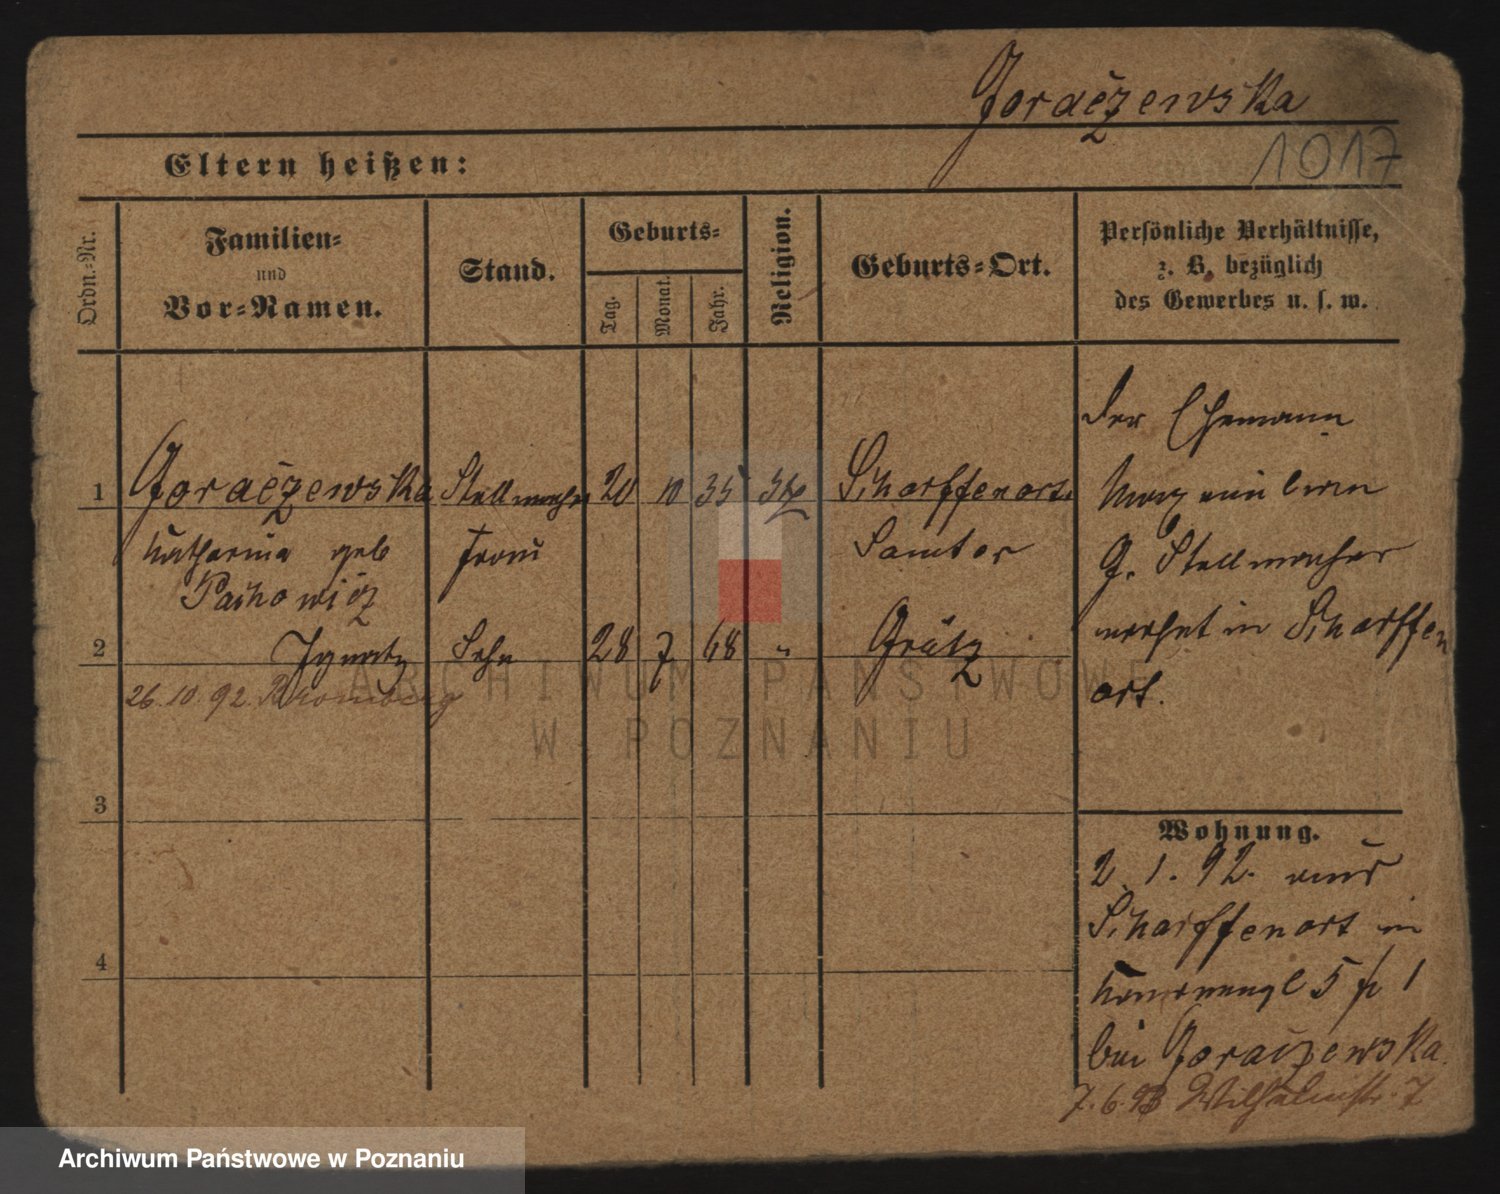 Joraczewska
1017
Eltern heißen:
Ordn.-Nr.
Familien-
und
Vor-Namen.
Stand.
Geburts-
Tag.
Monat.
Jahr.
Religion.
Geburts-Ort.
Persönliche Verhältnisse,
z. B. bezüglich
des Gewerbes u. s. w.
1 Joraczewska Stellmacher 20 10 35 Scharffenort
Katharina geb Frau Samter
2 Ignatz Sohn 28 7 68 " Grätz
26.10.92. Bromberg
3
4
Der Ehemann
G. Stellmacher
wohnt in Scharffen
ort.
Wohnung.
2. 1. 92. aus
Scharffenort in
5 1
bei Joraczewska.
7.6.93 Wilhelmstr. 7
ARCHIWUM PAŃSTWOWE
W POZNANIU
Archiwum Państwowe w Poznaniu